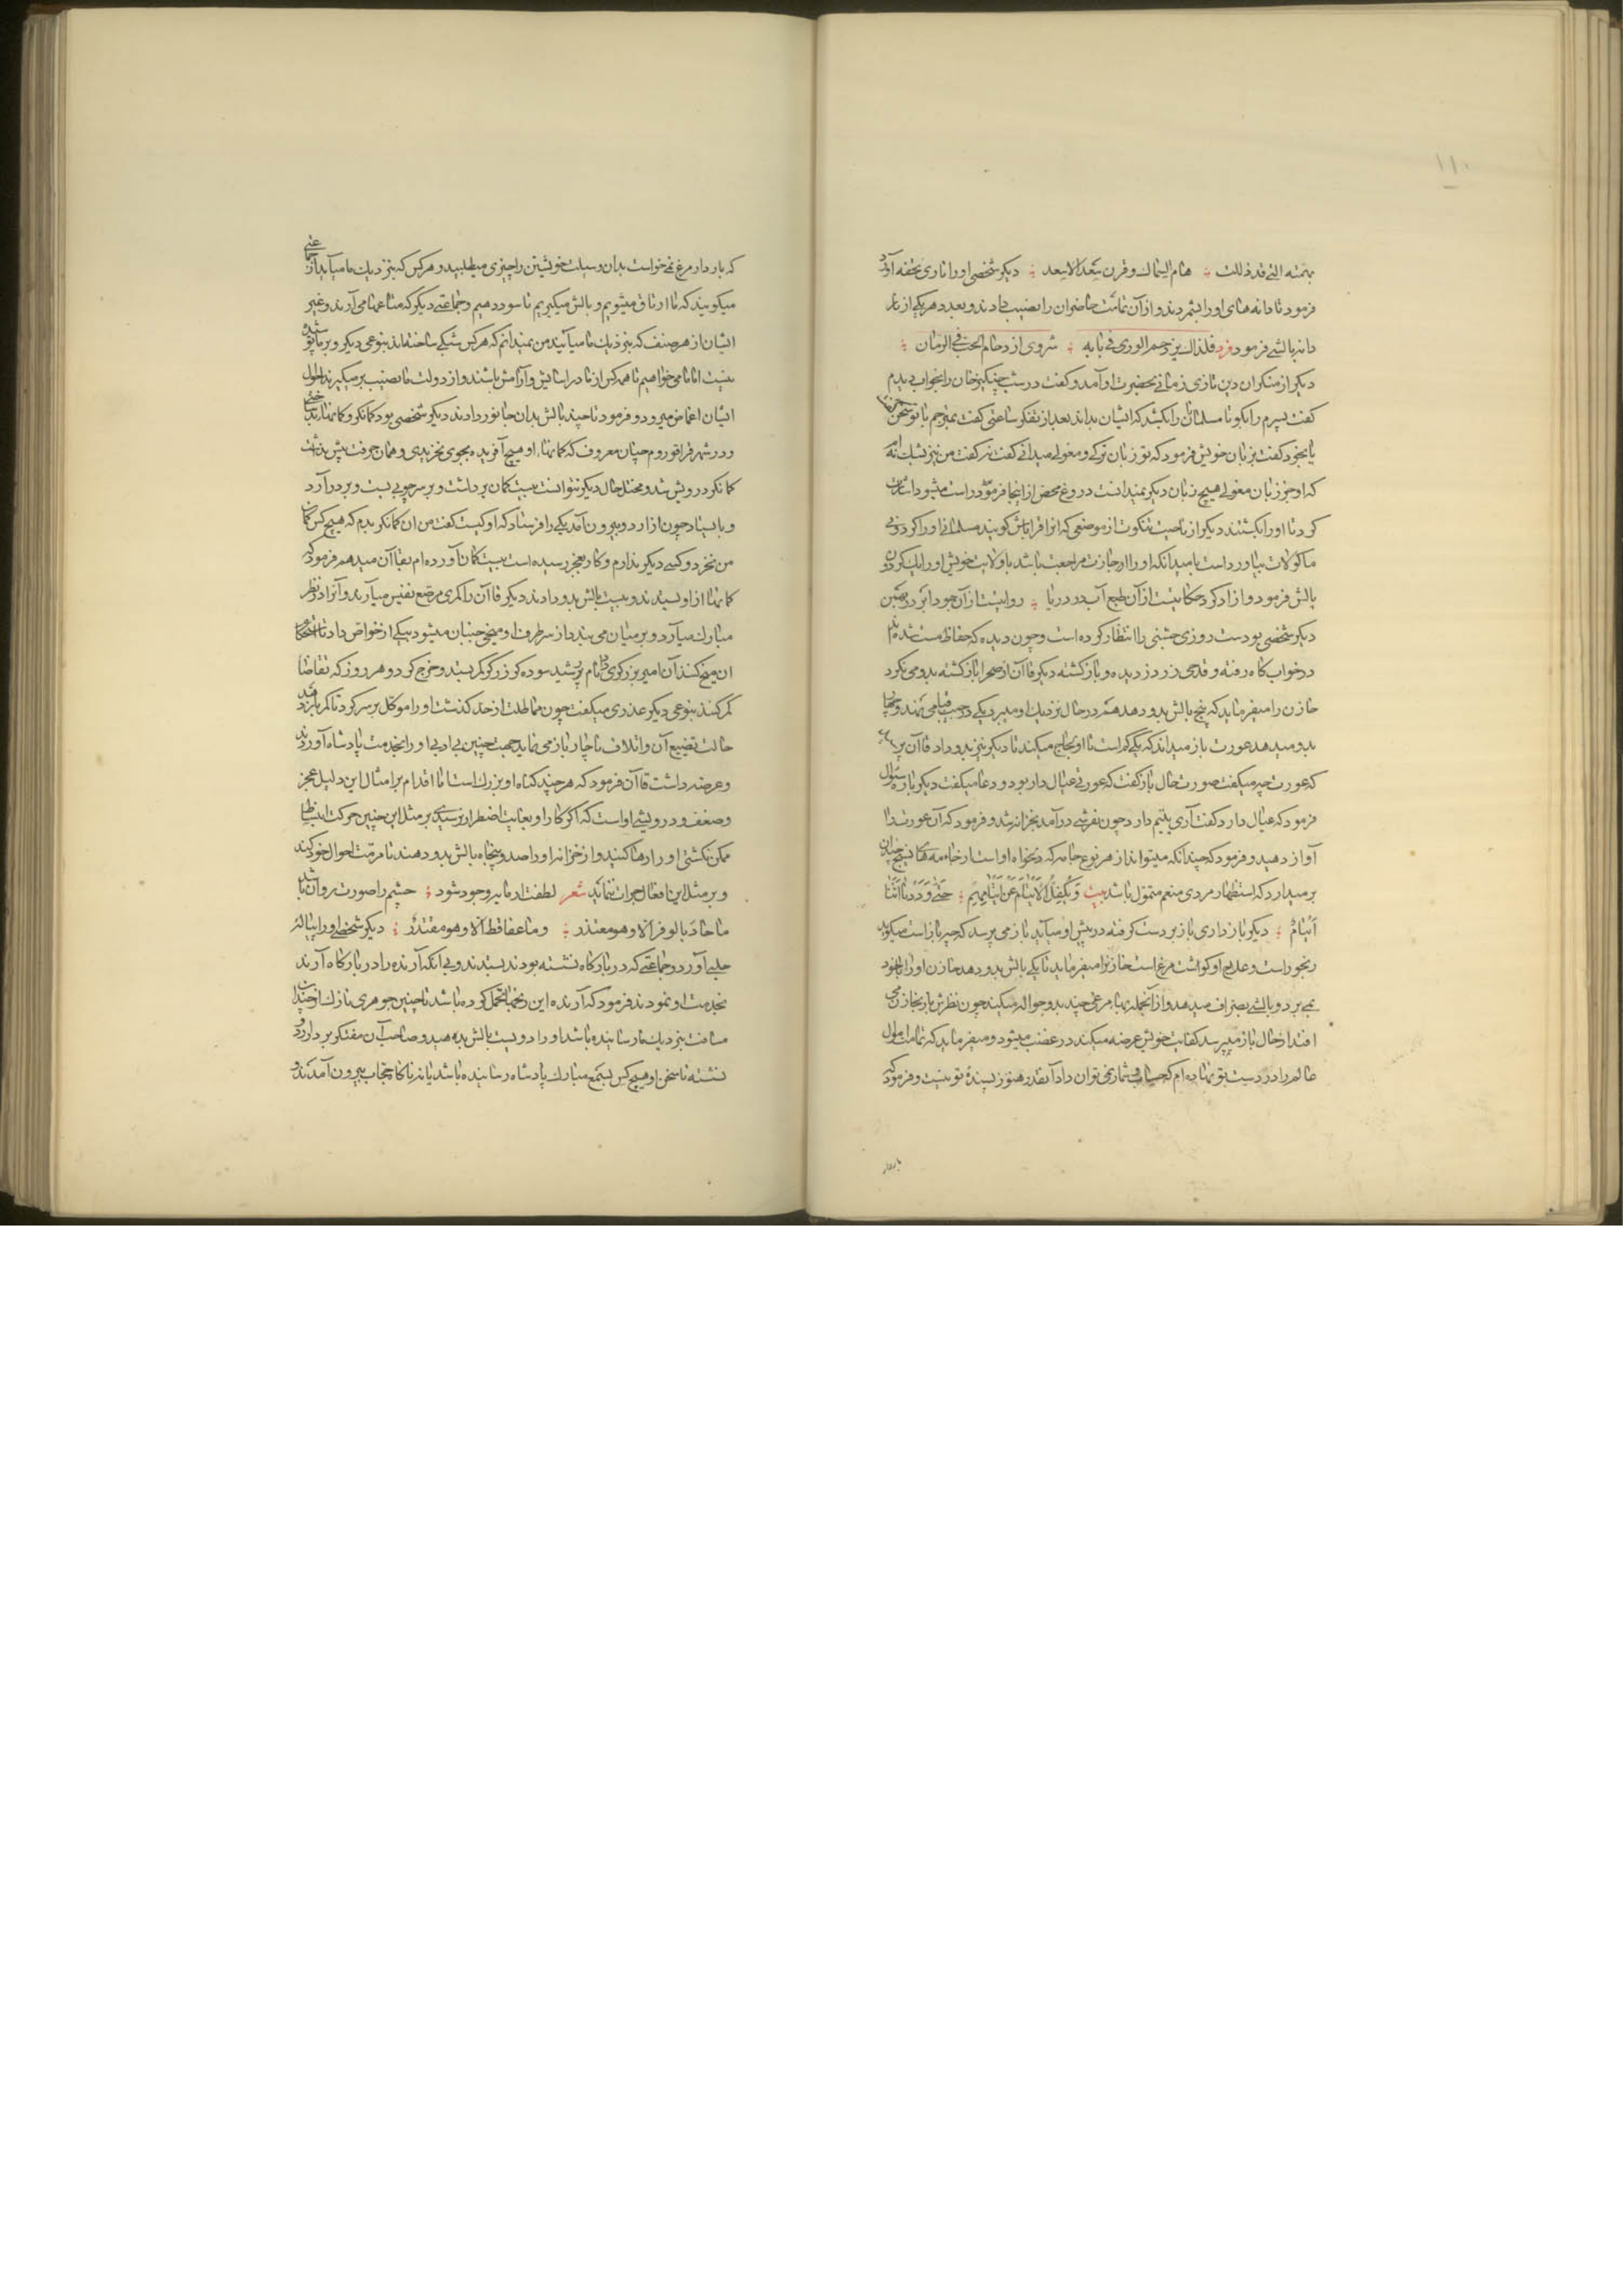 ۱۱۰
بهمته التی قد ذللت هام السماك وفرق بعد الابعد دیکر شخصی او را ناری تحفه آورد
فرمود تا دانه های او را بشمردند و از آن تمامت حاضران را نصیب دادند و بعدد هر یکی از نار
دانه بالشی فرمود فرد فلذالك یزدحم الوری فی بابه شروی ازدحام الحب فی الرمان
دیکر از منکران دین تازی زبانی بحضرت او آمد و کفت در شب چنکیز خان را بخواب دیدم
کفت پسرم را بکو تا مسلمانان را بکشد که ایشان بداند بعد از تفکر ساعتی کفت بترجم با تو سخن کفت
یا بخود کفت بزبان خویش فرمود که تو زبان ترکی و مغولی میدانی کفت نه کفت من نیز بشك نه ام
که او جز زبان مغولی هیچ زبان دیکر نمیدانست دروغ محض از اینجا راست میشود اشارت
کرد تا او را بکشتند دیکر از ناحیت تنکوت از موضعی که انرا قراتاش کویند مسلمانی او را کردونی
ماکولات بیاورد است بامید آنکه او را اجازت مراجعت باشد با ولایت خویش او را یك کردون
بالش فرمود و ازاد کرد حکایتست از آن طبع آب در دریا روایتست از آن جود ابر در بهمن
دیکر شخصی بودست روزی جشنی را انتظار کرده است و چون دیده که حفاظ مست شده اند
در خوابکاه رفته و قدحی زر دزدیده و بازکشته دیکر قاآن از صحرا بازکشته بدو می نکرد
خازن را میفرماید که پنج بالش بدو دهد هم در حال نزدیك او میبرد یکی در جیب قبا می نهد و
بدو میدهد عورت باز میداند که یکی کم است با او لجاج میکند تا دیکر نیز بدو داد قاآن پرسید
که عورت چه میکفت صورت حال باز کفت که عورتی عیال دار بود و دعا میکفت دیکر باره سوال
فرمود که عیال دارد کفت آری یتیم دارد چون بقرشی درآمد بخزانه شد و فرمود که آن عورت را
آواز دهید و فرمود که چندانکه میتواند از هر نوع جامه که دلخواه او است از جامه های نسیج چندان
برمیدارد که استظهار مردی منعم متمول باشد بیت وَیَکْفُلُ الاَیْتَامَ عَنْ آبَائِهِمْ حَتّٰی وَدَدْنَا اَنَّنَا
اَیْتَامُ دیکر بازداری باز بر دست کرفته در پیش او میآید باز می پرسد که چه باز است میکوید
رنجور است و علاج او کوشت مرغ است خازن را میفرماید تا یکی بالش بدو دهد خازن او را با خود
می برد و بالشی بصراف میدهد و از آنجمله بهاء مرغی چند بدو حواله میکند چون نظرش باز بخازن می
افتد از حال باز میپرسد کفایت خویش عرضه میکند در غضب میشود و میفرماید که تمامت اموال
عالم را در دست تو نهاده ام که حساب و شمار نمی توان داد آنقدر هنوز بسندهٔ تو نیست و فرمود که
بازدار
که بازدار مرغ نمی خواست بدان وسیلت خویشتن را چیزی میطلبید و هر کس که بنزدیك ما میآید از جماعتی
میکویند که ما ارتاق میشویم و بالش میکیریم تا سود دهیم و جماعتی دیکر که متاعها می آرند و غیر
ایشان از هر صنف که بنزدیك ما میآیند من نمیدانم که هر کس شبکی ساخته اند بنوعی دیکر و بر ما پوشیده
نیست اما ما می خواهیم تا همه کس از ما در آسایش و آرامش باشند و از دولت ما نصیب برمیکیرند از احوال
ایشان اغماض میرود و فرمود تا چند بالش بدان جانور دادند دیکر شخصی بود کمانکر و کمانهاء بد
و در شهر قراقوروم چنان معروف که کمانهاء او هیچ آفریده بجوی نخریدی و همان حرفت پیش نداشت
کمانکر درویش شد و مختل حال دیکر نتوانست بیست کمان برداشت و بر سر چوبی بست و بر در آرد
و بایستاد چون از اردو بیرون آمد یکی را فرستاد که او کیست کفت من ان کمانکر بدم که هیچ کس کمان
من نخرد و کسب دیکر ندارم و کار بعجز رسیده است بیست کمان آورده ام بقاآن میدهم فرمود که
کمانها از او بستدند و بیست بالش بدو دادند دیکر قاآن را کمری مرصع نفیس میآرند و آنرا در نظر
مبارك میآرد و بر میان می بندد از سر طرف او میخی جنبان میشود بیکی از خواص داد تا استحکام
ان میخ کند آن امیر بزرکری نام رشید سوده کر زرکر کمر بستد و خرج کرد و هر روز که تقاضا
کمر کنند بنوعی دیکر عذری میکفت چون مماطلت از حد کذشت او را موکل بر سر کرد تا کمر باز دهد
حالت تضییع آن و اتلاف ناچار باز می نماید جهت چنین بی ادبی او را بخدمت پادشاه آوردند
و عرضه داشت قاآن فرمود که هر چند کناه او بزرك است اما اقدام بر امثال این دلیل عجز
و ضعف و درویشی او است که اکر کار او بغایت اضطرار نرسیدی بر مثل این چنین حرکت انبساط
ممکن نکشتی او را رها کنید و از خزانه او را صد و پنجاه بالش بدو دهند تا مرمت احوال خود کند
و بر مثل این افعال جرات ننماید شعر لطفت ار مایه وجود شود جسم را صورت روان باشد
ما جاد بالوفر الا وهو معتذر وما عفا قط الا وهو مقتدر دیکر شخصی او را پیاله
حلبی آورد و جماعتی که در بارکاه نشسته بودند بستدند و بی آنکه آرنده را در بارکاه آرند
بخدمت او نمودند فرمود که آرنده این زحمتها تحمل کرده باشد تا چنین جوهری نازك از چندان
مسافت بنزدیك ما رسانیده باشد او را دویست بالش بدهید و صاحب آن متفکر بر در اردو
نشسته تا سخن او هیچ کس بسمع مبارك پادشاه رسانیده باشد یا نه ناکاه حجاب بیرون آمدند و